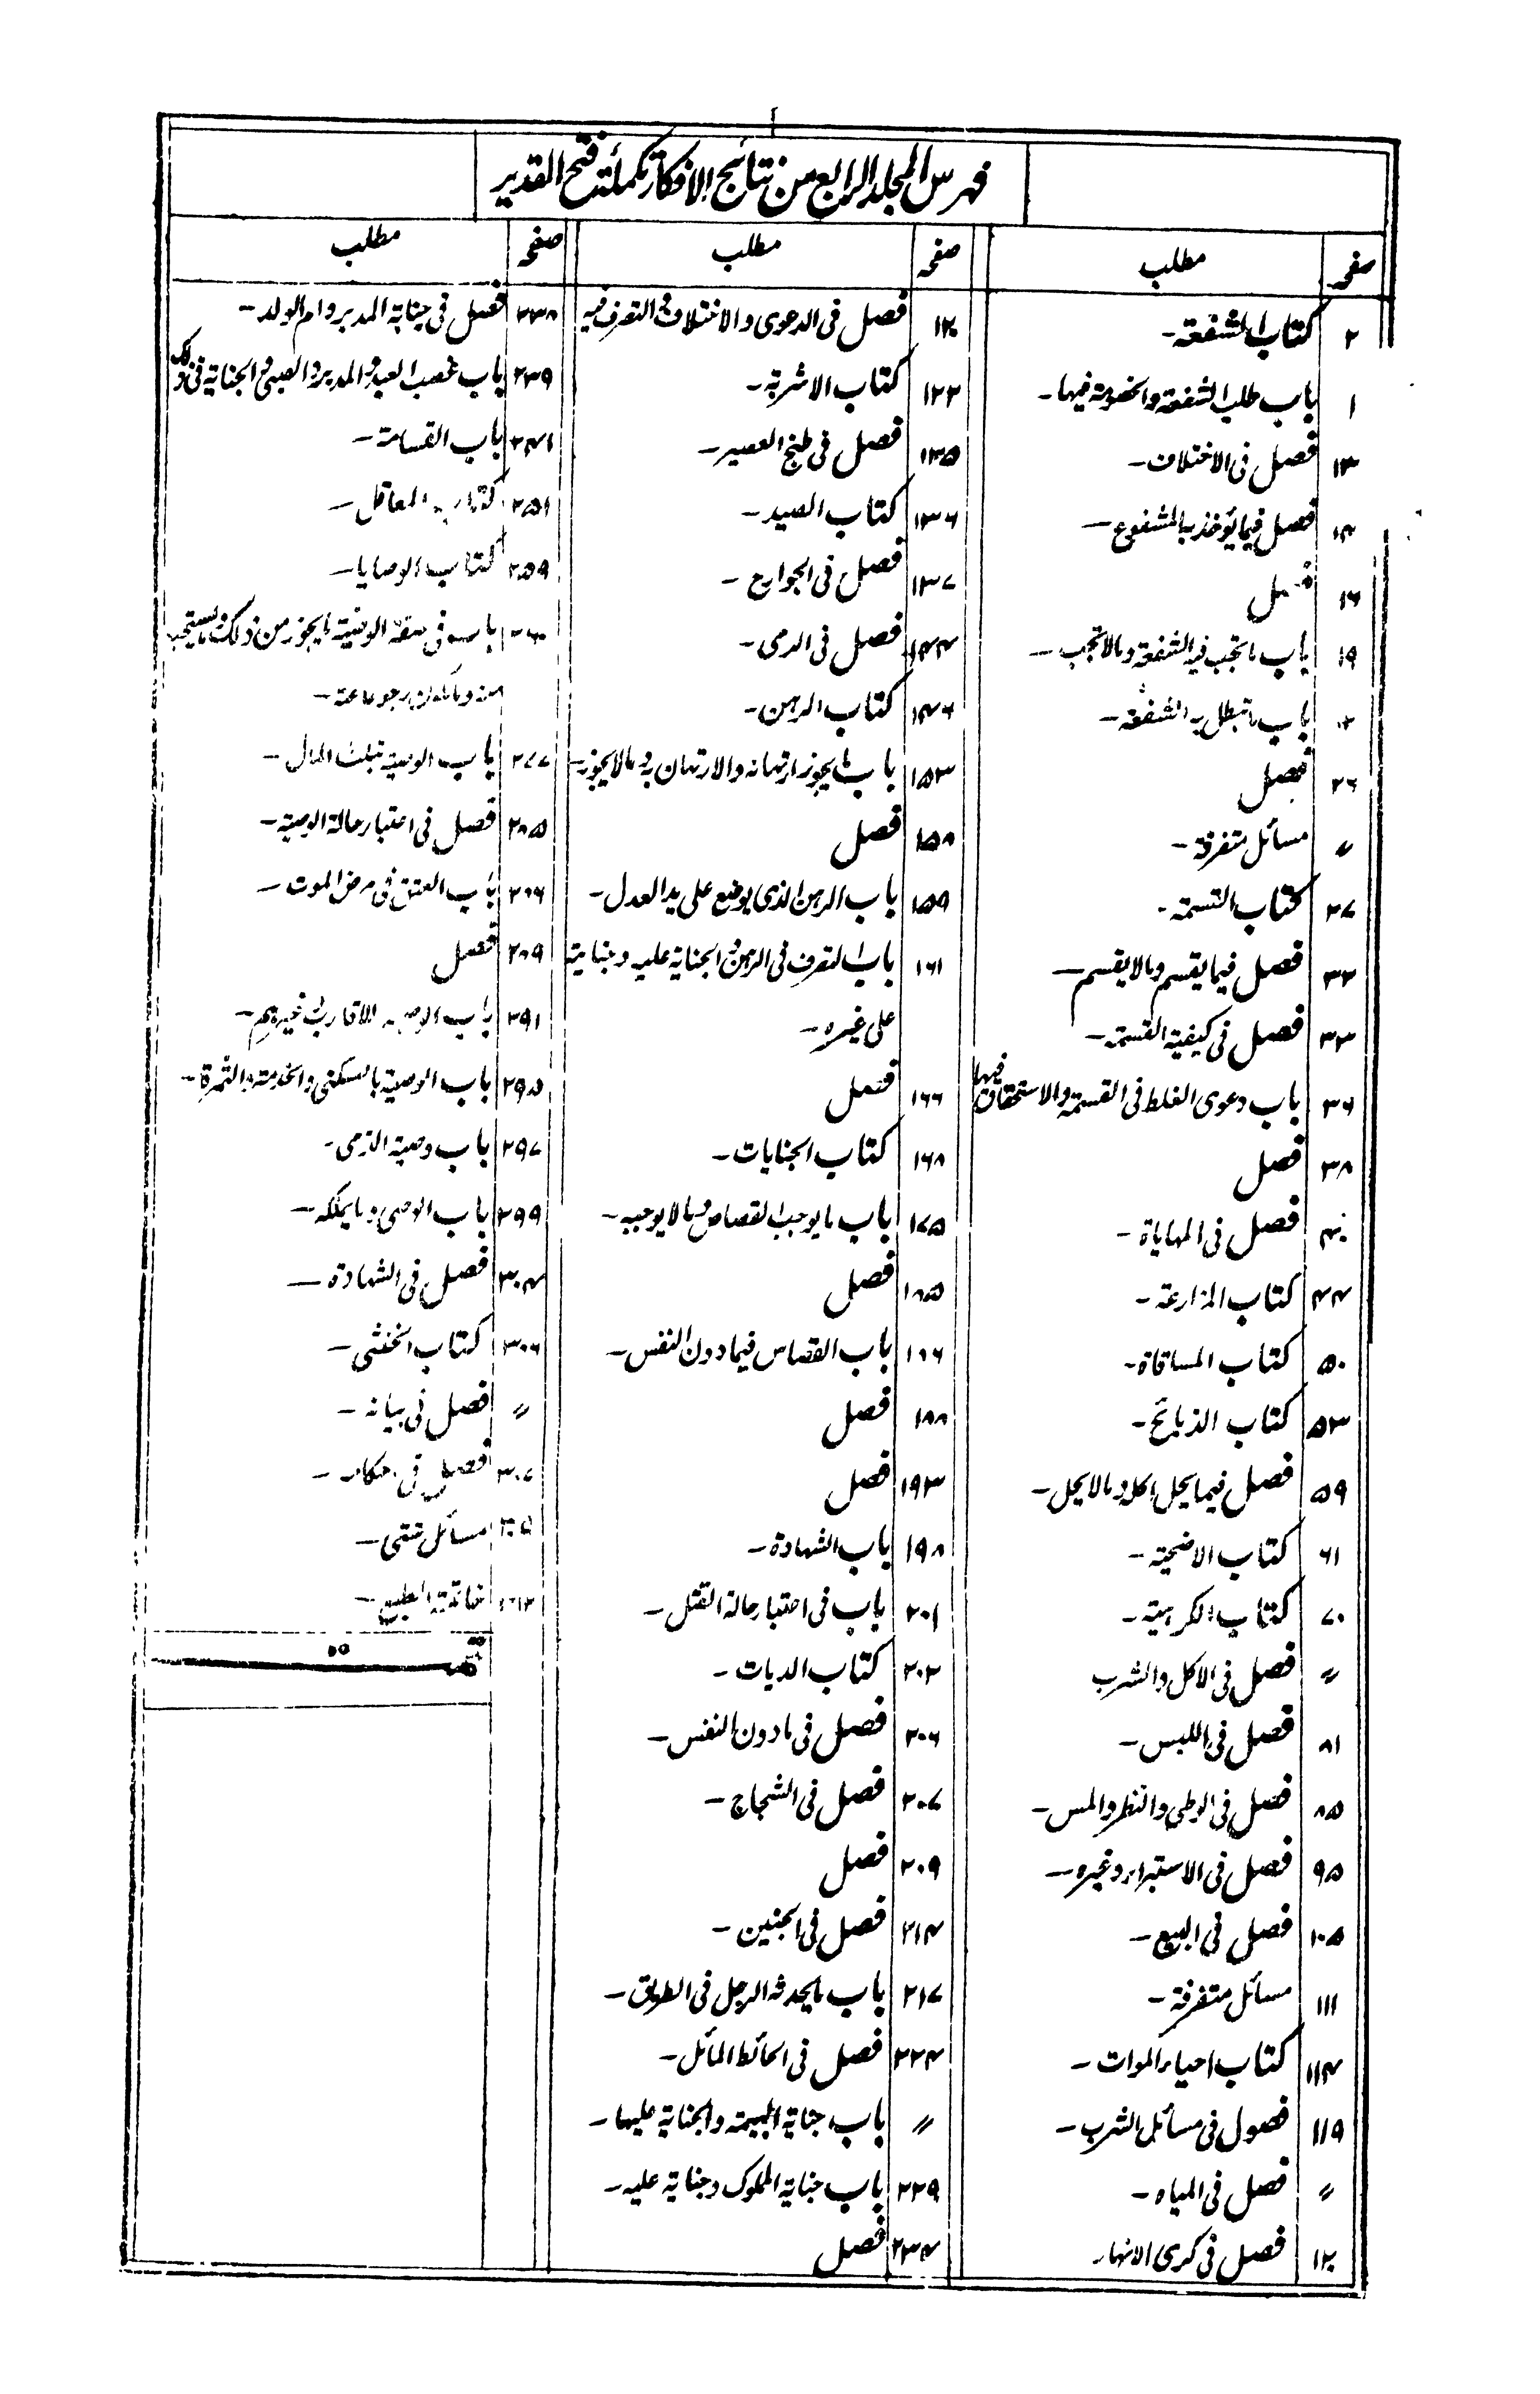 فهرس المجلد الرابع من نتائج الافكار تكملة فتح القدير
صفحه مطلب
٢ كتاب الشفعة-
باب طلب الشفعة والخصومة فيها-
١٣ فصل فى الاختلاف-
١٤ فصل فيما يؤخذ به المشفوع-
١٦ فصل
١٩ باب ما تجب فيه الشفعة وما لا تجب-
باب ما تبطل به الشفعة-
٢٦ فصل
〃 مسائل متفرقة-
٢٧ كتاب القسمة-
٣٢ فصل فيما يقسم وما لا يقسم-
٣٣ فصل فى كيفية القسمة-
٣٦ باب دعوى الغلط فى القسمة والاستحقاق فيها
٣٨ فصل
٤٠ فصل فى المهاياة-
٤٤ كتاب المزارعة-
٥٠ كتاب المساقاة-
٥٣ كتاب الذبائح-
٥٩ فصل فيما يحل اكله وما لا يحل-
٦١ كتاب الاضحية-
٧٠ كتاب الكراهية-
〃 فصل فى الاكل والشرب
٨١ فصل فى اللبس-
٨٥ فصل فى الوطى والنظر والمس-
٩٥ فصل فى الاستبراء وغيره-
١٠٥ فصل فى البيع-
١١١ مسائل متفرقة-
١١٤ كتاب احياء الموات-
١١٩ فصول فى مسائل الشرب-
〃 فصل فى المياه-
١٢٠ فصل فى كرى الانهار
صفحه مطلب
١٢٠ فصل فى الدعوى والاختلاف والتصرف فيه
١٢٢ كتاب الاشربة-
١٣٥ فصل فى طبخ العصير-
١٣٦ كتاب الصيد-
١٣٧ فصل فى الجوارح-
١٤٤ فصل فى الرمى-
١٤٦ كتاب الرهن-
١٥٣ باب ما يجوز ارتهانه والارتهان به وما لا يجوز-
١٥٨ فصل
١٥٩ باب الرهن الذى يوضع على يد العدل-
١٦١ باب التصرف فى الرهن والجناية عليه وجنايته
على غيره-
١٦٦ فصل
١٦٨ كتاب الجنايات-
١٧٥ باب ما يوجب القصاص وما لا يوجبه-
١٨٥ فصل
١٨٦ باب القصاص فيما دون النفس-
١٨٨ فصل
١٩٣ فصل
١٩٨ باب الشهادة-
٢٠١ باب فى اعتبار حالة القتل-
٢٠٢ كتاب الديات-
٢٠٦ فصل فى ما دون النفس-
٢٠٧ فصل فى الشجاج-
٢٠٩ فصل
٢١٤ فصل فى الجنين-
٢١٧ باب ما يحدثه الرجل فى الطريق-
٢٢٤ فصل فى الحائط المائل-
〃 باب جناية البهيمة والجناية عليها-
٢٢٩ باب جناية المملوك وجناية عليه-
٢٣٤ فصل
صفحه مطلب
٢٣٨ فصل فى جناية المدبر وام الولد-
٢٣٩ باب غصب العبد والمدبر والصبى والجناية فى ذلك
٢٤١ باب القسامة-
٢٥١ كتاب المعاقل-
٢٥٩ كتاب الوصايا-
باب فى صفة الوصية ما يجوز من ذلك وما يستحب
منه وما يكون رجوعا عنه-
٢٧٧ باب الوصية بثلث المال-
٢٨٥ فصل فى اعتبار حالة الوصية-
٢٨٦ باب العتق فى مرض الموت-
٢٨٩ فصل
٢٩١ باب الوصية للاقارب وغيرهم-
٢٩٥ باب الوصية بالسكنى والخدمة والثمرة-
٢٩٧ باب وصية الذمى-
٢٩٩ باب الوصى وما يملكه-
٣٠٤ فصل فى الشهادة-
٣٠٦ كتاب الخنثى-
〃 فصل فى بيانه-
٣٠٧ فصل فى احكامه-
مسائل شتى-
خاتمة الطبع-
تمت